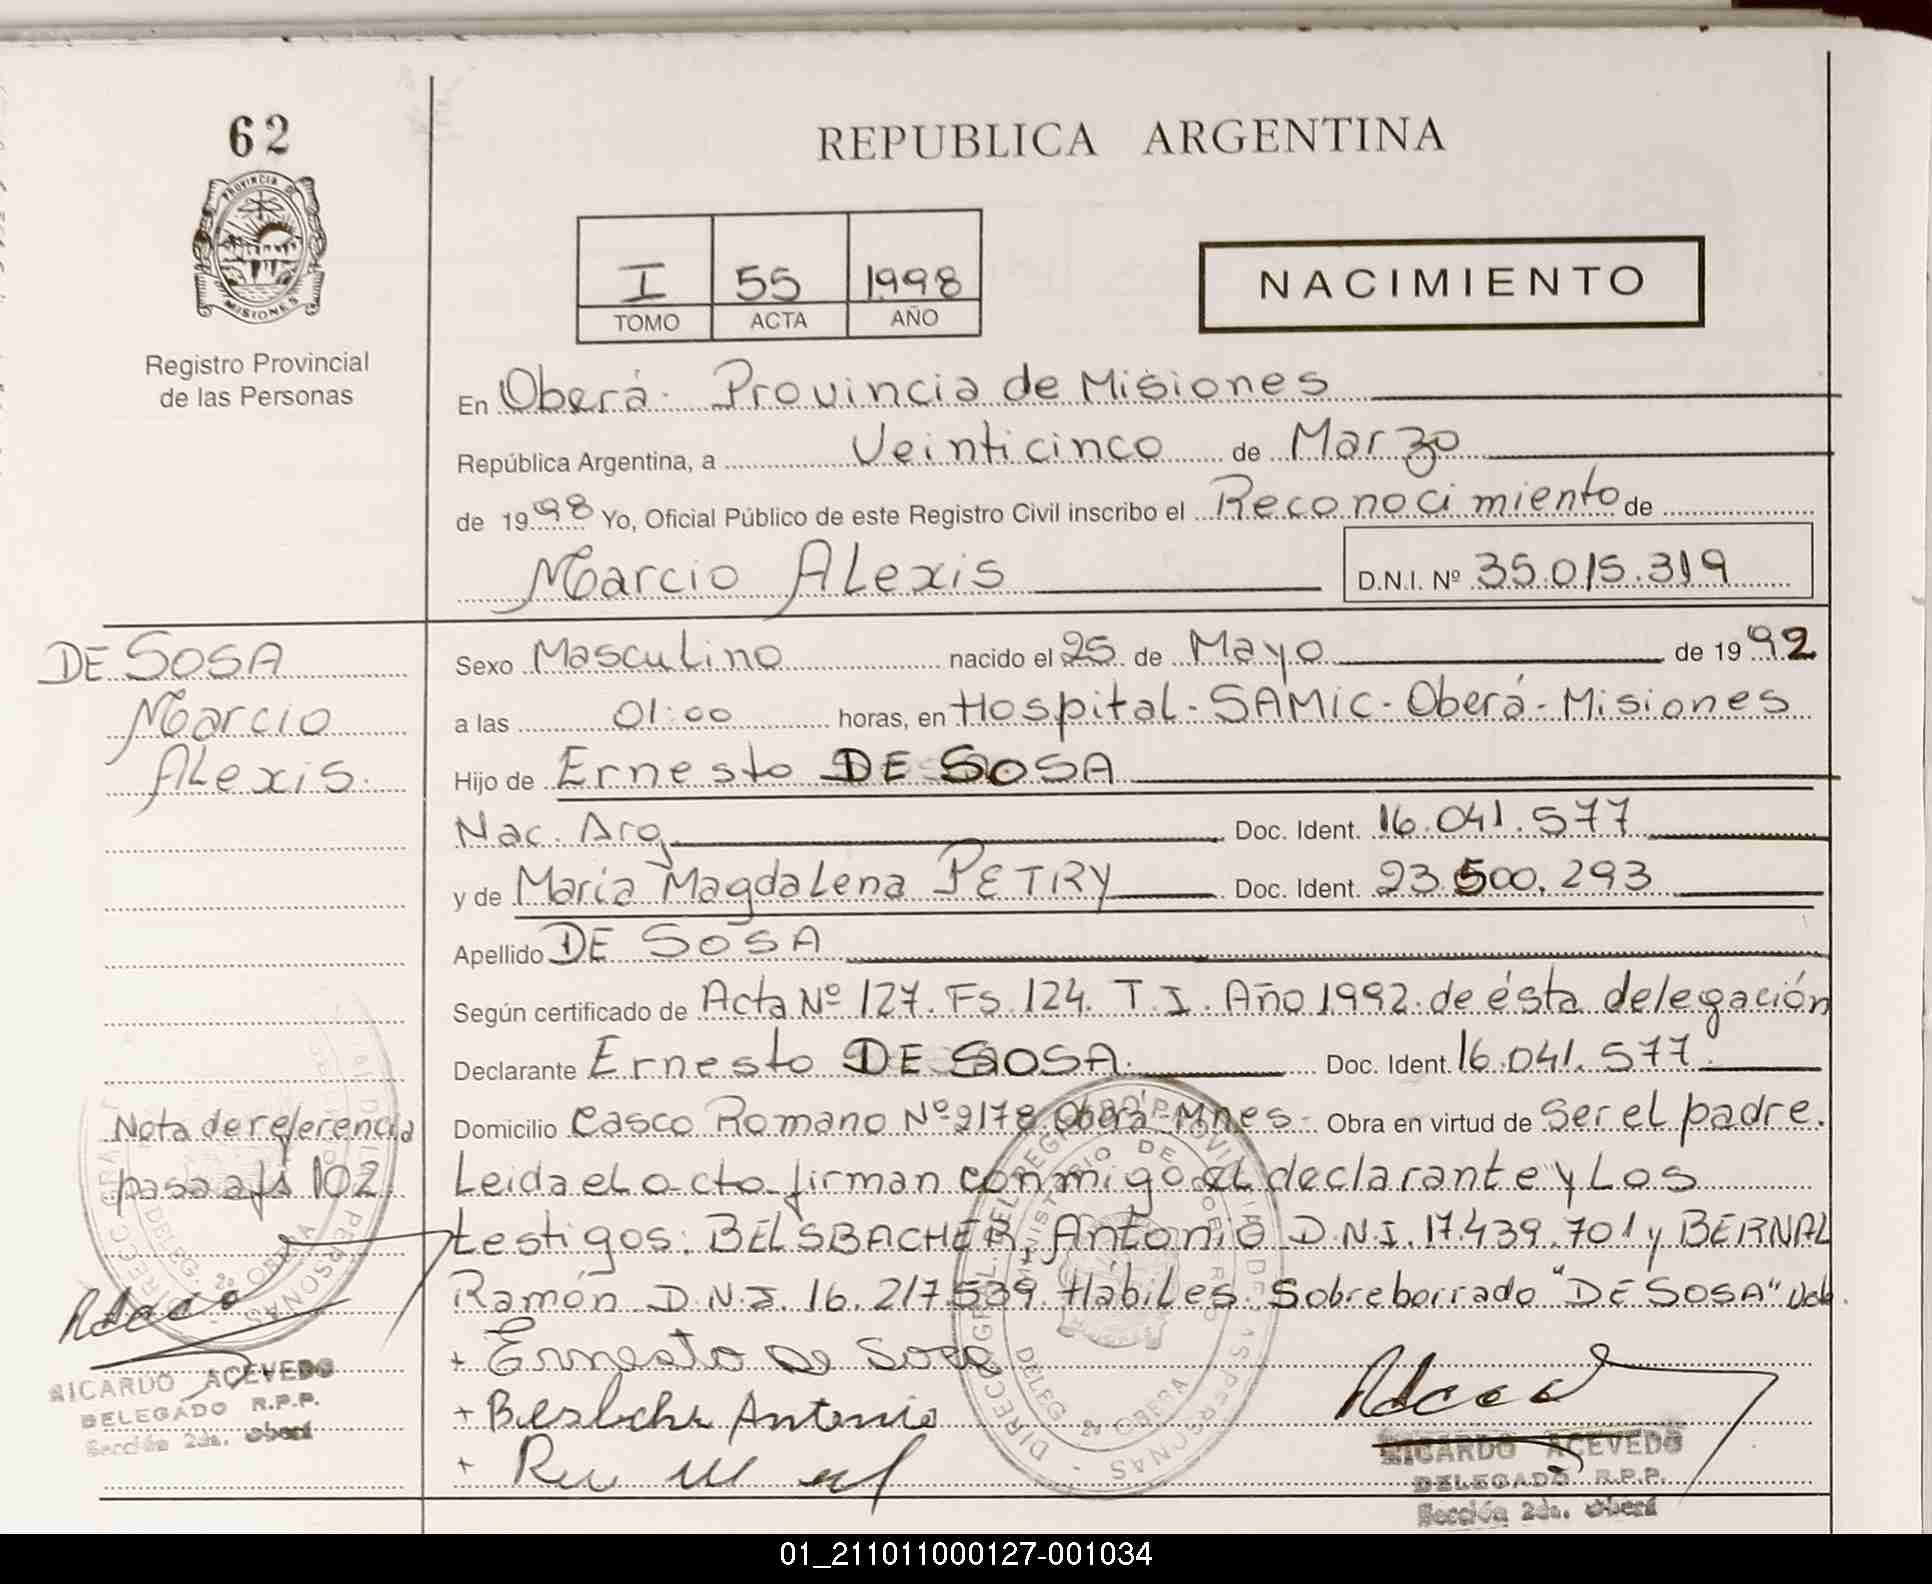 62
PROVINCIA DE
MISIONES
Registro Provincial
de las Personas
REPUBLICA ARGENTINA
I 55 1998
TOMO ACTA AÑO
NACIMIENTO
En Oberá - Provincia de Misiones
República Argentina, a Veinticinco de Marzo
de 1998 Yo, Oficial Público de este Registro Civil inscribo el Reconocimiento de
Marcio ALexis D.N.I. Nº 35.015.319
DE SOSA
Marcio
ALexis.
Sexo Masculino nacido el 25 de Mayo de 1992
a las 01:00 horas, en Hospital - SAMIC - Oberá - Misiones
Hijo de Ernesto DE SOSA
Nac. Arg. Doc. Ident. 16.041.577
y de María Magdalena PETRY Doc. Ident. 23.500.293
Apellido DE SOSA
Según certificado de Acta Nº 127. Fs. 124. T. I. Año 1992. de ésta delegación
Declarante Ernesto DE SOSA. Doc. Ident. 16.041.577.
Domicilio Casco Romano Nº 2178 Oberá - Mnes - Obra en virtud de Ser el padre.
Leida el acta firman conmigo el declarante y Los
testigos: BELSBACHER, Antonio D.N.I. 17.439.701 y BERNAL
Ramón D.N.I. 16.217.539 Habiles. Sobreborrado "DE SOSA" Vale.
Nota de referencia
pasa a fs 102
RICARDO ACEVEDO
DELEGADO R.P.P.
Sección 2da. Oberá
+ Ernesto de Sosa
+ Antonio
+
DELEG. 2ª OBERA
RICARDO ACEVEDO
DELEGADO R.P.P.
Sección 2da. Oberá
01_211011000127-001034